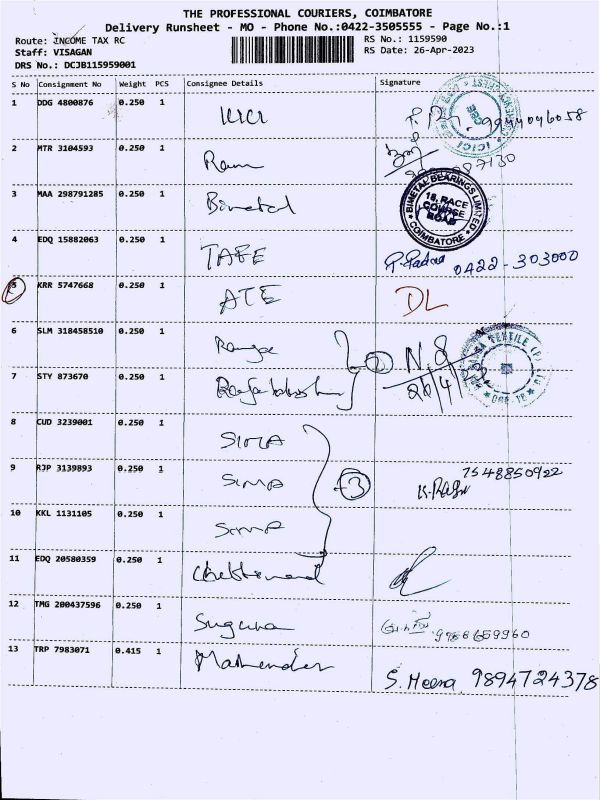 THE PROFESSIONAL COURIERS, COIMBATORE
Delivery Runsheet - MO - Phone No.:0422-3505555 - Page No.:1
Route: INCOME TAX RC
RS No.: 1159590
Staff: VISAGAN
RS Date: 26-Apr-2023
DRS No.: DCJB115959001
S No Consignment No Weight PCS Consignee Details Signature
1 DDG 4800876 0.250 1 ICICI
2 MTR 3104593 0.250 1 Ram
3 MAA 298791285 0.250 1 Bimetal
BIMETAL BEARINGS LIMITED
18, RACE
COURSE
ROAD
COIMBATORE
4 EDQ 15882063 0.250 1 TAFE 0422-303000
5 KRR 5747668 0.250 1 ATE DL
6 SLM 318458510 0.250 1 N.S
7 STY 873670 0.250 1 26/4
8 CUD 3239001 0.250 1 SIMA
9 RJP 3139893 0.250 1 SIMA 3 7548850922
K.Ragu
10 KKL 1131105 0.250 1 SIMA
11 EDQ 20580359 0.250 1
12 TMG 200437596 0.250 1 Suguna 9988659960
13 TRP 7983071 0.415 1 Mahender S. Meena 9894724378